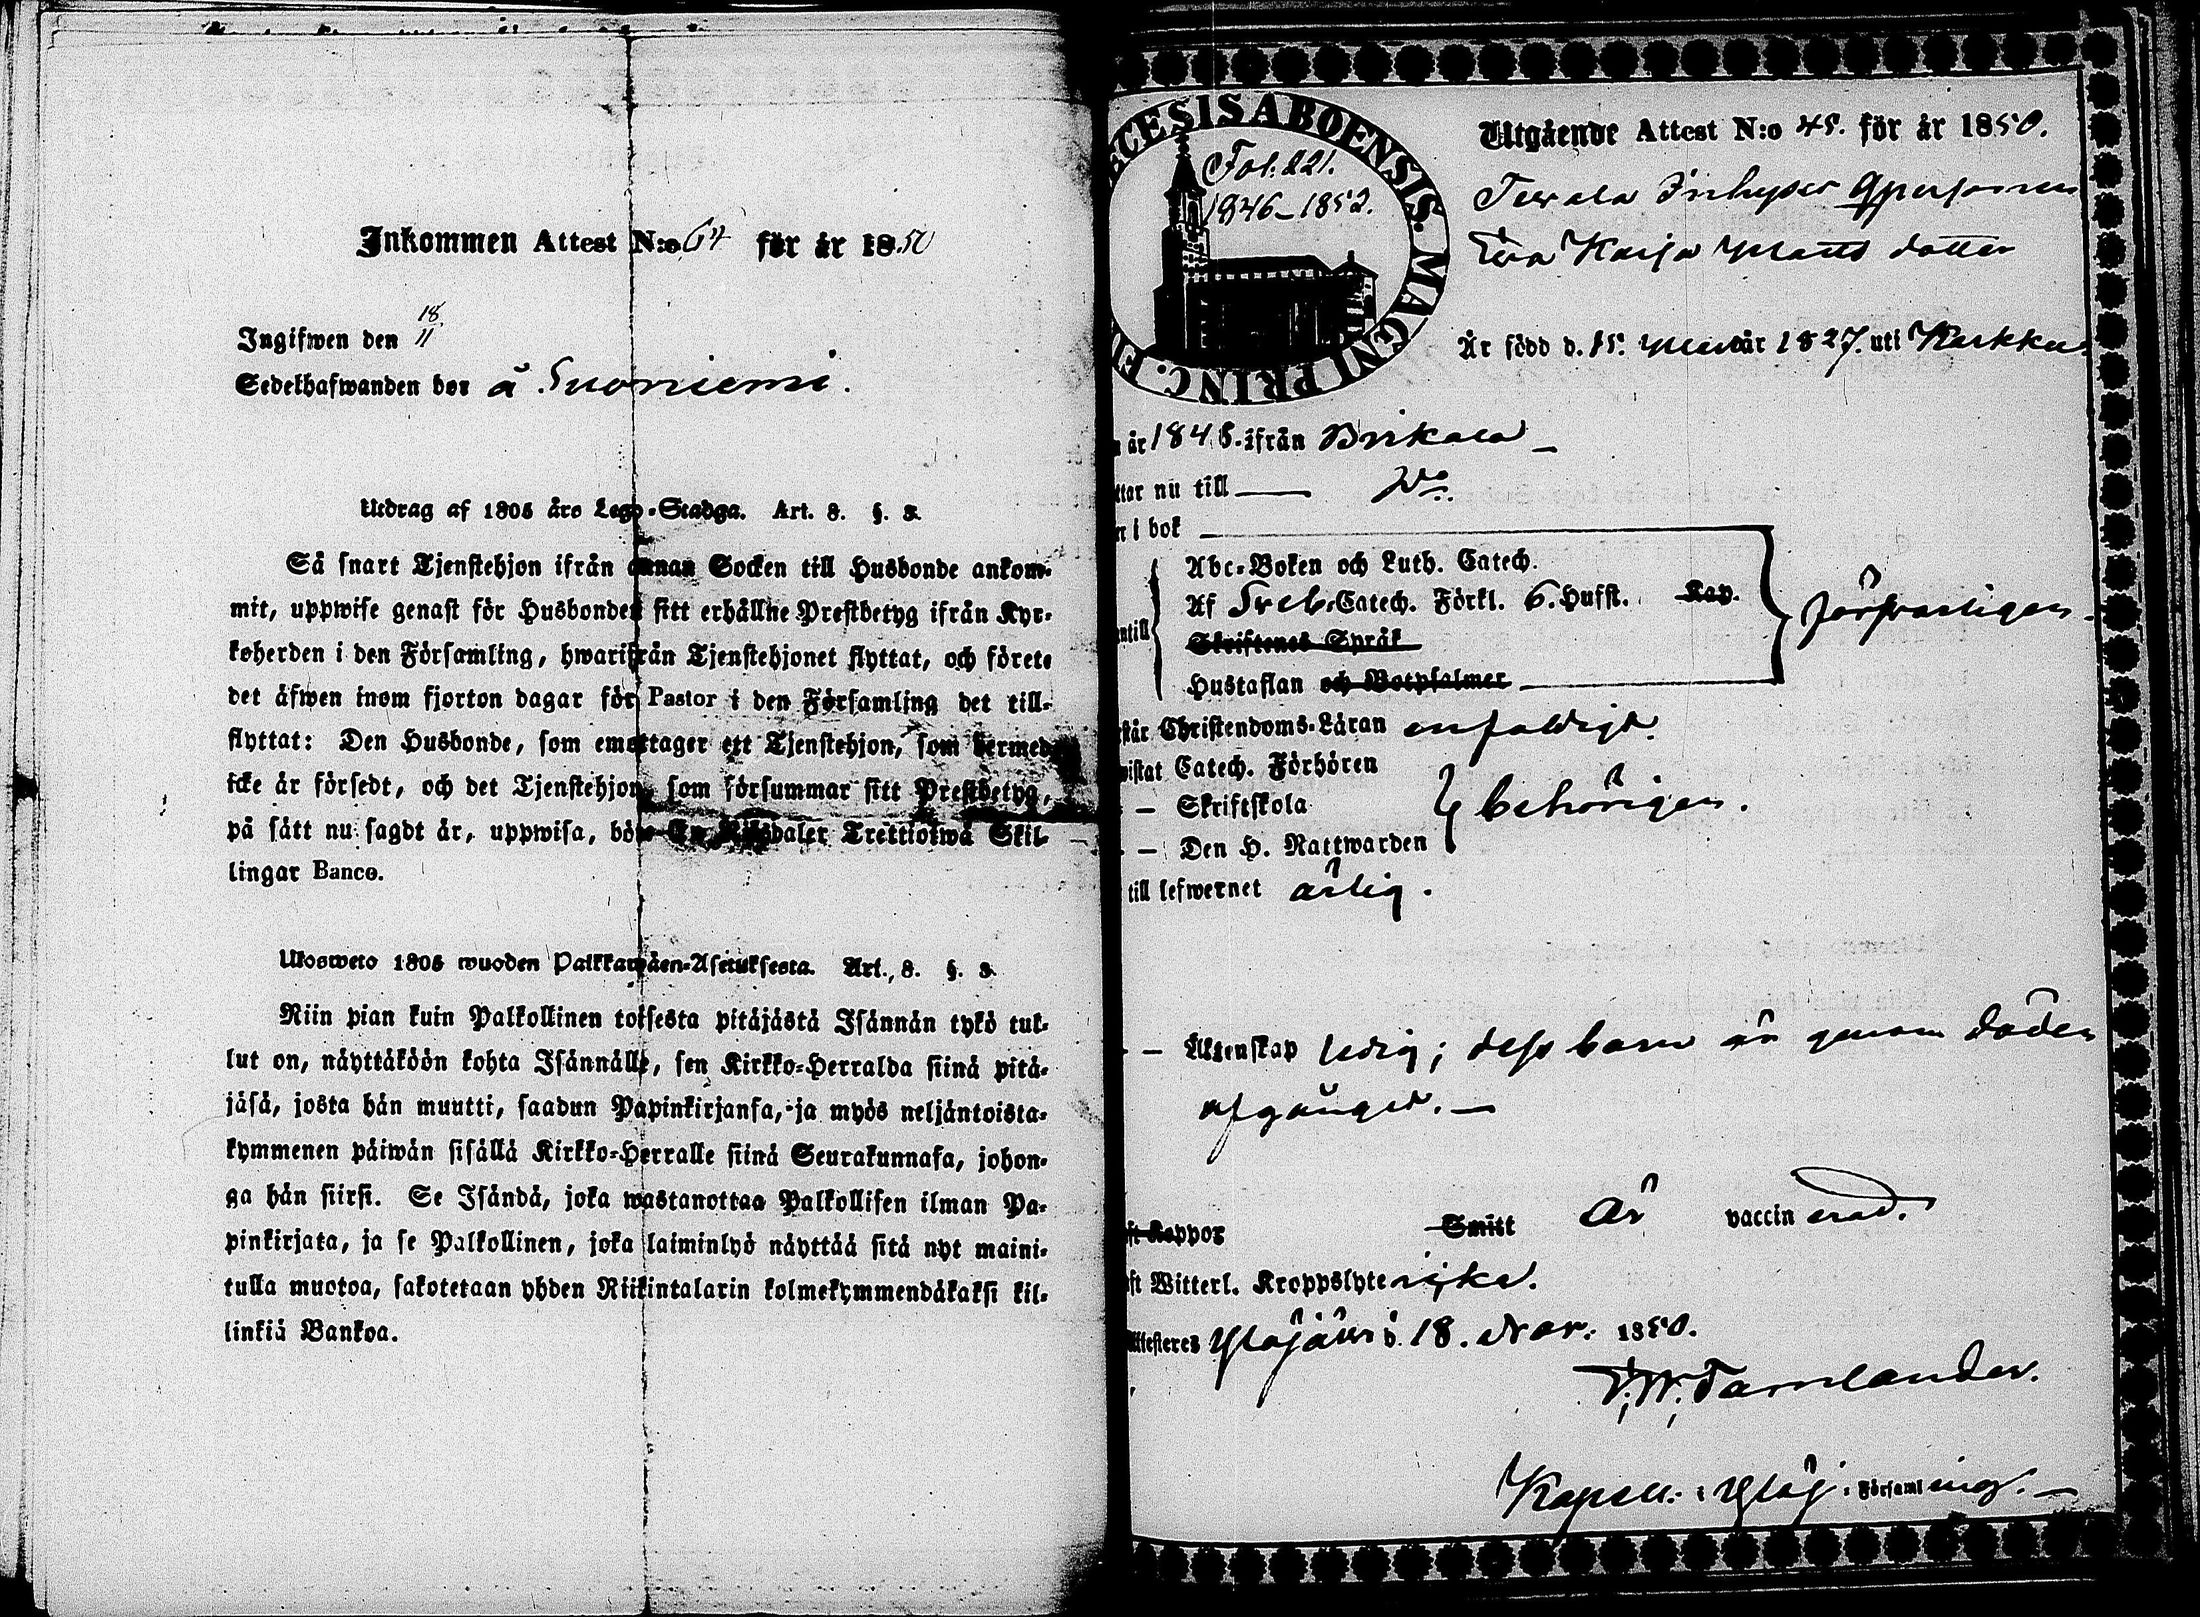 Inkommen Attest N:o 64 för år 1850
Ingifwen den 18/11
Sedelhafwanden bor å Suoniemi.
Utdrag af 1805 års Lego-Stadga. Art. 8. §. 3.
Så snart Tjenstehjon ifrån annan Socken till Husbonde ankom-
mit, uppwise genast för Husbonden sitt erhållne Prestbetyg ifrån Kyr-
koherden i den Församling, hwarifrån Tjenstehjonet flyttat, och förete
det äfwen inom fjorton dagar för Pastor i den Församling det till-
flyttat: Den Husbonde, som emottager ett Tjenstehjon, som hermed
icke är försedt, och det Tjenstehjon, som försummar sitt Prestbetyg,
på sätt nu sagdt är, uppwisa, böte En Riksdaler Trettiotwå Skil-
lingar Banco.
Ulosweto 1805 wuoden Palkkawäen-Asetuksesta. Art. 8. §. 3.
Niin pian kuin Palkollinen toisesta pitäjästä Isännän tykö tul-
lut on, näyttäköön kohta Isännälle, sen Kirkko-Herralda siinä pitä-
jäsä, josta hän muutti, saadun Papinkirjansa, ja myös neljäntoista-
kymmenen päiwän sisällä Kirkko-Herralle siinä Seurakunnasa, johon-
ga hän siirsi. Se Isändä, joka wastanottaa Palkollisen ilman Pa-
pinkirjata, ja se Palkollinen, joka laiminlyö näyttää sitä nyt maini-
tulla muotoa, sakotetaan yhden Riikintalarin kolmekymmendäkaksi kil-
linkiä Bankoa.
CESIS ABOENSIS. MAGNI PRINC.
Fol. 221.
1846-1852.
Utgående Attest N:o 45. för år 1850.
Inhyses Qpersonen
Eva Kaisa Matts dotter
Är född d. 15. Mars år 1827. uti Karkku
år 1848. ifrån Birkala
ttar nu till Do.
i bok
Abc-Boken och Luth. Catech.
Af Sveb. Catech. Förkl. 6. Hufst. Kap.
ntill
Skriftenes Språk
Hustaflan och Botpsalmer
försvarligen.
står Christendoms-Läran enfaldigt.
wistat Catech. Förhören
— Skriftskola
— Den H. Nattwarden
behörigen.
till lefwernet ärlig.
— Äktenskap ledig; dess barn är genom döden
afgånget.
ft Koppor Smitt Är vaccinerad.
ft Witterl. Kroppslyte icke.
Attesteres Ylöjärvi d. 18. Nov. 1850.
Tamlander.
Kapell. i Ylöj. Församling.